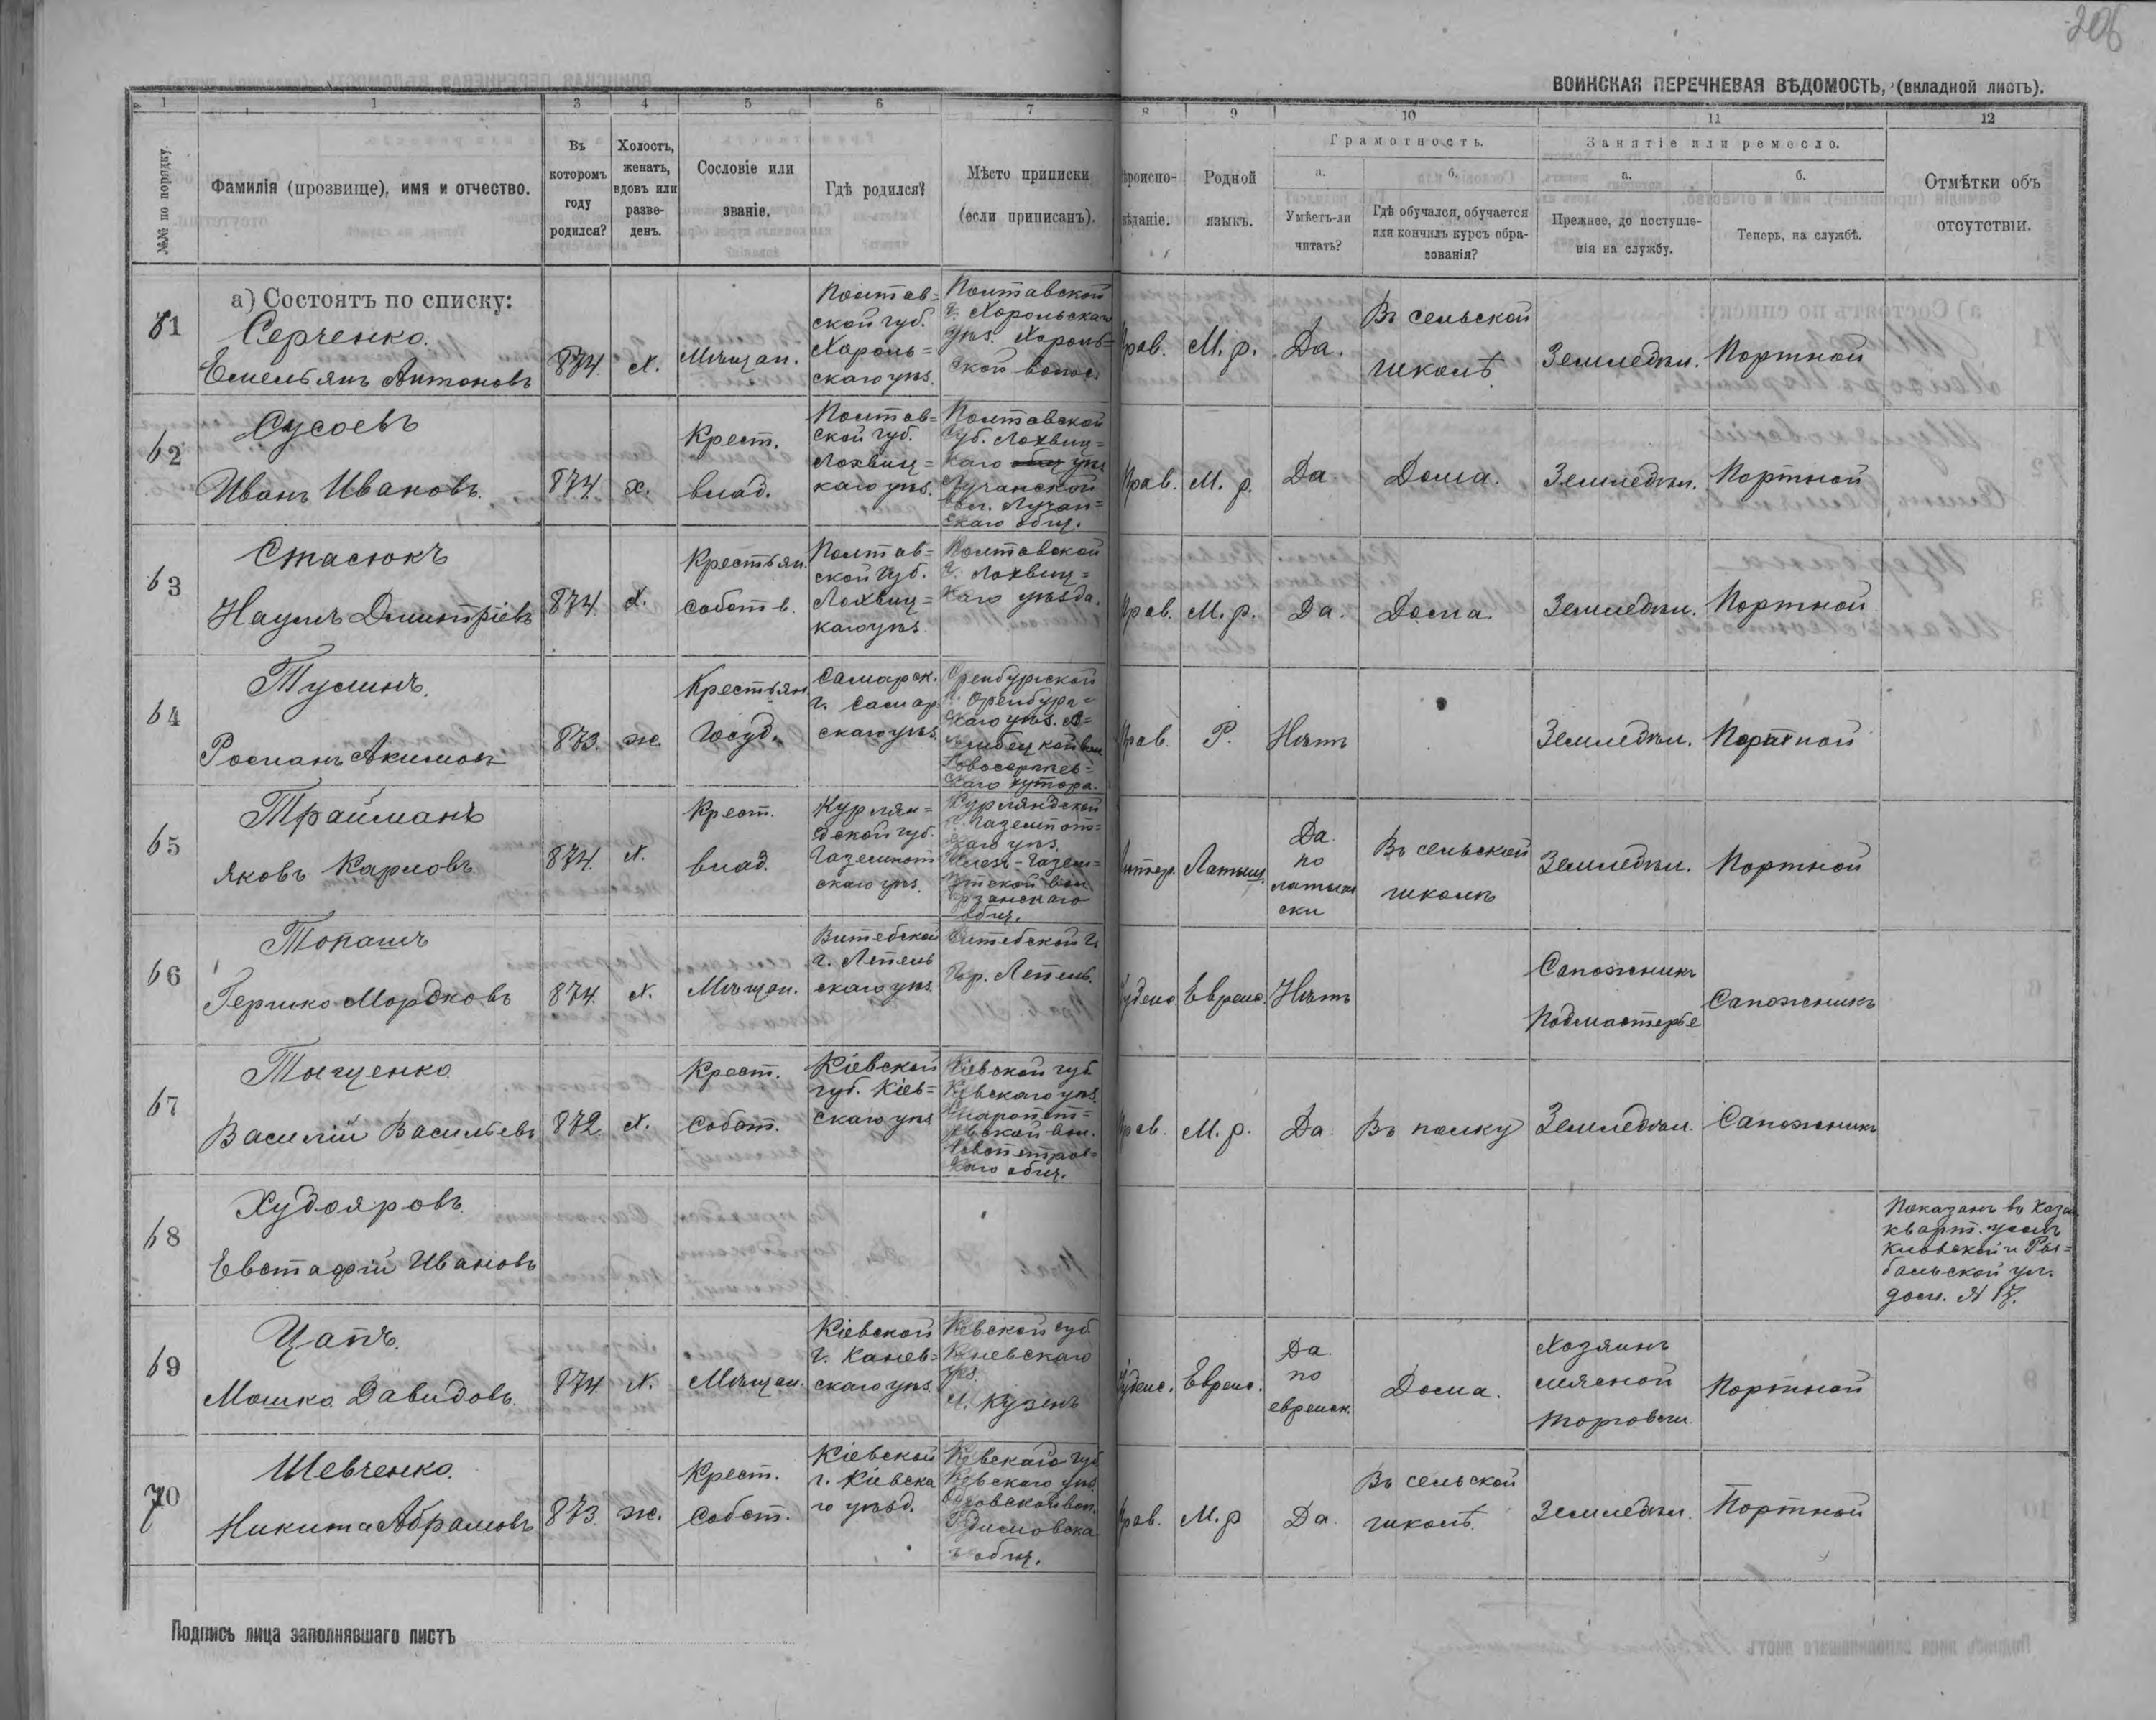 206
ВОИНСКАЯ ПЕРЕЧНЕВАЯ ВѢДОМОСТЬ, (вкладной листъ).
1 1 3 4 5 6 7 8 9 10 11 12
№№ по порядку.
Фамилія (прозвище), имя и отчество.
Въ которомъ году родился?
Холостъ, женатъ, вдовъ или разведенъ.
Сословіе или званіе.
Гдѣ родился?
Мѣсто приписки (если приписанъ).
Родной языкъ.
Грамотность.
а. Умѣетъ-ли читать?
б. Гдѣ обучался, обучается или кончилъ курсъ образованія?
Занятіе или ремесло.
а. Прежнее, до поступленія на службу.
б. Теперь, на службѣ.
Отмѣтки объ отсутствіи.
а) Состоятъ по списку:
61 Серченко. Емельянъ Антоновъ 874. Х. Мѣщан. Полтавской губ. Хорольскаго уѣз. Полтавской г. Хорольскаго уѣз. Хорольской волос. Прав. М. р. Да. Въ сельской школѣ. Земледѣл. Портной
62 Сусоевъ Иванъ Ивановъ. 874 х. Крест. влад. Полтавской губ. Лохвицкаго уѣз. Полтавской губ. Лохвицкаго уѣз. Прав. М. р. Да. Дома. Земледѣл. Портной
63 Стасюкъ Наумъ Дмитріевъ 874. Х. Крестьян. собств. Полтавской губ. Лохвицкаго уѣз. Полтавской г. Лохвицкаго уѣзда. Прав. М. р. Да. Дома. Земледѣл. Портной
64 Романъ Акимовъ 873. ж. Крестьян. Госуд. Самарск. г. Самарскаго уѣз. Оренбургской г. Оренбургскаго уѣз. хутора. Прав. Р. Нѣтъ Земледѣл. Портной
65 Трайманъ Яковъ Карловъ 874. Х. Крест. влад. Курляндской губ. Газенпотскаго уѣз. Курляндской г. Газенпотскаго уѣз. общ. Лютер. Латыш. Да по латышски Въ сельской школѣ Земледѣл. Портной
66 Топашъ Гершко Мордковъ 874. Х. Мѣщан. Витебской г. Лепельскаго уѣз. Витебской г. гор. Лепель. Іудейс. Еврейс. Нѣтъ Сапожникъ Подмастерье Сапожникъ
67 Тыщенко Василій Васильевъ 872. Х. Крест. Собст. Кіевской губ. Кіевскаго уѣз. Кіевской губ. Кіевскаго уѣз. Старопетровской вол. Новопетровскаго общ. Прав. М. р. Да. Въ полку Земледѣл. Сапожникъ
68 Худояровъ Евстафій Ивановъ Показанъ въ казен. кварт. дом. № 17.
69 Цапъ. Мошко Давидовъ. 874. Х. Мѣщан. Кіевской г. Каневскаго уѣз. Кіевской губ. Каневскаго уѣз. Іудейс. Еврейс. Да по еврейск. Дома. Хозяинъ мясной торговли Портной
70 Шевченко. Никита Абрамовъ 873. ж. Крест. Собст. Кіевской г. Кіевскаго уѣзд. Кіевскаго губ. Кіевскаго уѣз. общ. Прав. М. р Да. Въ сельской школѣ. Земледѣл. Портной
Подпись лица заполнявшаго листъ